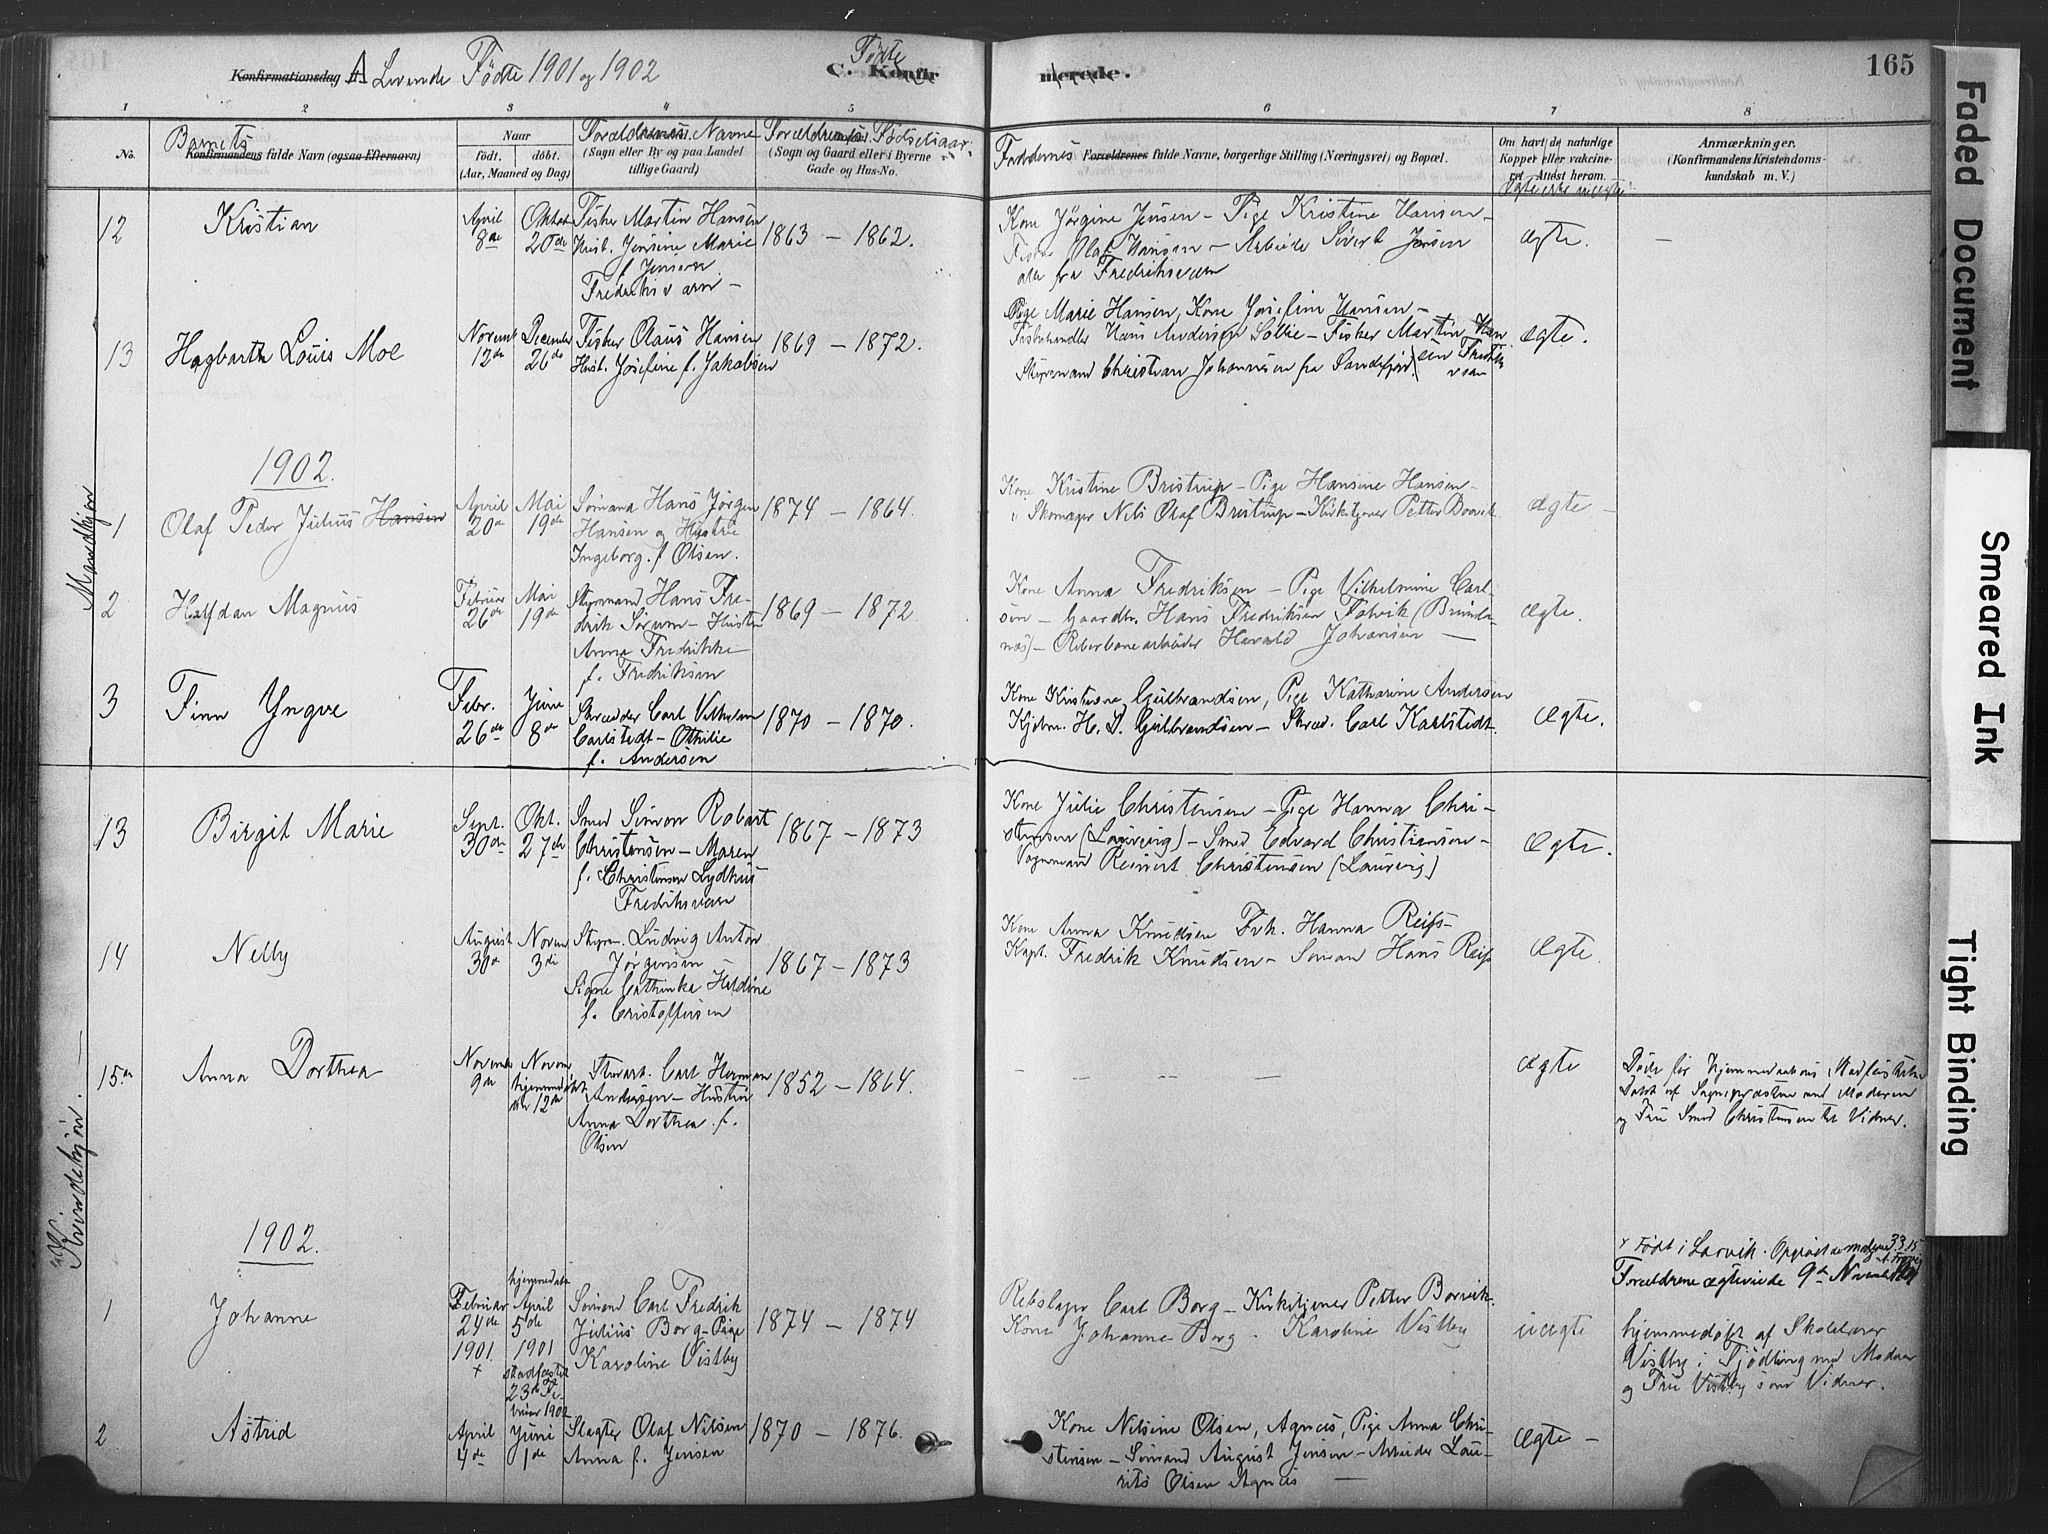 Konfirmationsdag A Levende Fødte 1901 og 1902
Fødte
C. Konfirmerede.
165
1 2 3 4 5 6 7 8
No.
Barnets
Konfirmandens fulde Navn (ogsaa Efternavn)
Naar
født. døbt.
(Aar, Maaned og Dag)
Forældrenes Navne
(Sogn eller By og paa Landet
tillige Gaard)
Forældrenes Fødselsaar
(Sogn og Gaard eller i Byerne
Gade og Hus-No.
Faddernes Forældrenes fulde Navne, borgerlige Stilling (Næringsvei) og Bopæl.
Om havt de naturlige
Kopper eller vakcine-
ret. Attest herom.
Ægte eller uægte.
Anmærkninger.
(Konfirmandens Kristendoms-
kundskab m. V.)
Mandkjøn
12 Kristian
April
8de
Oktober
20de
Fisker Martin Hansen
Hust. Jensine Marie
f. Jensen
Fredriksværn –
1863 – 1862.
Kone Jörgine Jensen – Pige Kristine Hansen –
Fisker Olaf Hansen – Arbeider Sivert Jensen
alle fra Fredriksværn
ægte. –
13 Hagbarth Louis Moe
Novemb
12de
December
26de
Fisker Olaus Hansen
Hust. Josefine f. Jakobsen
1869 – 1872.
Pige Marie Hansen, Kone Josefine Hansen –
Fiskehandler Hans Andersen Sollie – Fisker Martin Han
sen Fredriks
værn
Styrmand Christian Johannesen fra Sandefjord
ægte.
1902.
1 Olaf Peder Julius Hansen
April
20de
Mai
19de
Sömand Hans Jørgen
Hansen og Hustru
Ingeborg f. Olsen.
1874 – 1864.
Kone Kristine Bristrup – Pige Hansine Hansen –
" Skomager Nils Olaf Bristrup – Kirketjener Petter Borvik.
ægte –
2 Halfdan Magnus
Februar
26de
Mai
19de
Styrmand Hans Fre-
drik Sørum – Hustru
Anna Fredrikke
f. Fredriksen
1869 – 1872.
Kone Anna Fredriksen – Pige Vilhelmine Carl-
sen – Gaardbr. Hans Fredriksen Falvik (Brunla-
næs) – Reberbanearbeider Harald Johansen –
Ægte.
3 Finn Yngve
Febr.
26de
Juni
8de
Skrædder Carl Vilhelm
Carlstedt – Othilie
f. Andersen
1870 – 1870.
Kone Kristiane Gulbrandsen, Pige Katharine Andersen
Kjøbm. H. J. Gulbrandsen – Skræd. Carl Karlstedt.
Ægte.
Kvindekjøn.
13 Birgit Marie
Sept.
30de
Okt.
27de
Smed Simon Robert
Christensen – Maren
f. Christensen Lydhus
Fredriksværn
1867 – 1873
Kone Julie Christensen – Pige Hanna Chri-
stensen (Laurvig) – Smed Edvard Christiansen –
Vognmand Reinert Christensen (Laurvig)
Ægte.
14 Nelly
August
30de
Novem
3de
Styrm. Ludvig Anton
Jørgensen
Signe Cathinka Heldine
f. Cristoffersen
1867 – 1873
Kone Anna Knudsen Frk. Hanna Reiss –
Kapt. Fredrik Knudsen – Sømand Hans Reiss
Ægte.
15de Anna Dorthea
Novemb
9de
Novem
hjemmedøbt
den 12de
Stuert. Carl Herman
Andersen – Hustru
Anna Dorthea f.
Olsen
1852 – 1864.
– – – –
ægte
Døde før Hjemmedaabens Stadfæstelse
Døbt af Sognepræsten med Moderen
og Fru Smed Christensen til Vidner.
1902.
x Født i Larvik.
Forældrene ægteviede 9de November 1901
1 Johanne
Februar
24de
1901.
x
hjemmedøbt
April
5de
1901
stadfæstet
23de Fe-
bruar 1902
Sømand Carl Fredrik
Julius Borg – Pige
Karoline Vistby
1874 – 1874
Rebslager Carl Borg – Kirketjener Petter Borvik.
Kone Johanne Borg. Karoline Vistby
uægte
hjemmedøbt af Skolelærer
Vistby i Tjödling med Moderen
og Fru Vistby som Vidner.
2 Astrid
April
4de
Juni
1de
Slagter Olaf Nilsen
Anna f. Jensen
1870 – 1876.
Kone Nilsine Olsen, Agnæs, Pige Anna Chri-
stensen – Sømand August Jensen – Arbeider Lau-
rits Olsen Agnæs –
Ægte –
Faded Document
Smeared Ink
Tight Binding